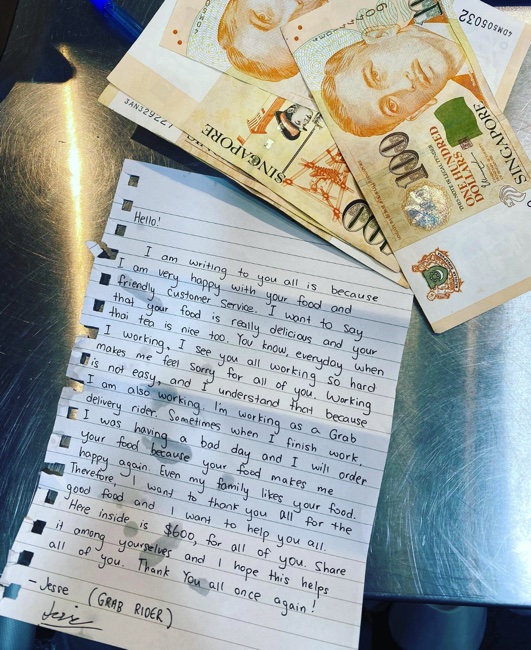 40MS05032
3ANS26227
SINGAPORE
100
SINGAPORE
ONE HUNDRED
DOLLARS
100
Hello!
I am writing to you all is because
I am very happy with your food and
friendly customer service. I want to say
that your food is really delicious and your
thai tea is nice too. You know, everyday when
I working, I see you all working so hard
makes me feel sorry for all of you. Working
is not easy, and I understand that because
I am also working. I'm working as a Grab
delivery rider. Sometimes when I finish work,
I was having a bad day and I will order
your food because your food makes me
happy again. Even my family likes your food.
Therefore, I want to thank you all for the
good food and I want to help you all.
Here inside is $600, for all of you. Share
it among yourselves and I hope this helps
all of you. Thank You all once again!
- Jesse (GRAB RIDER)